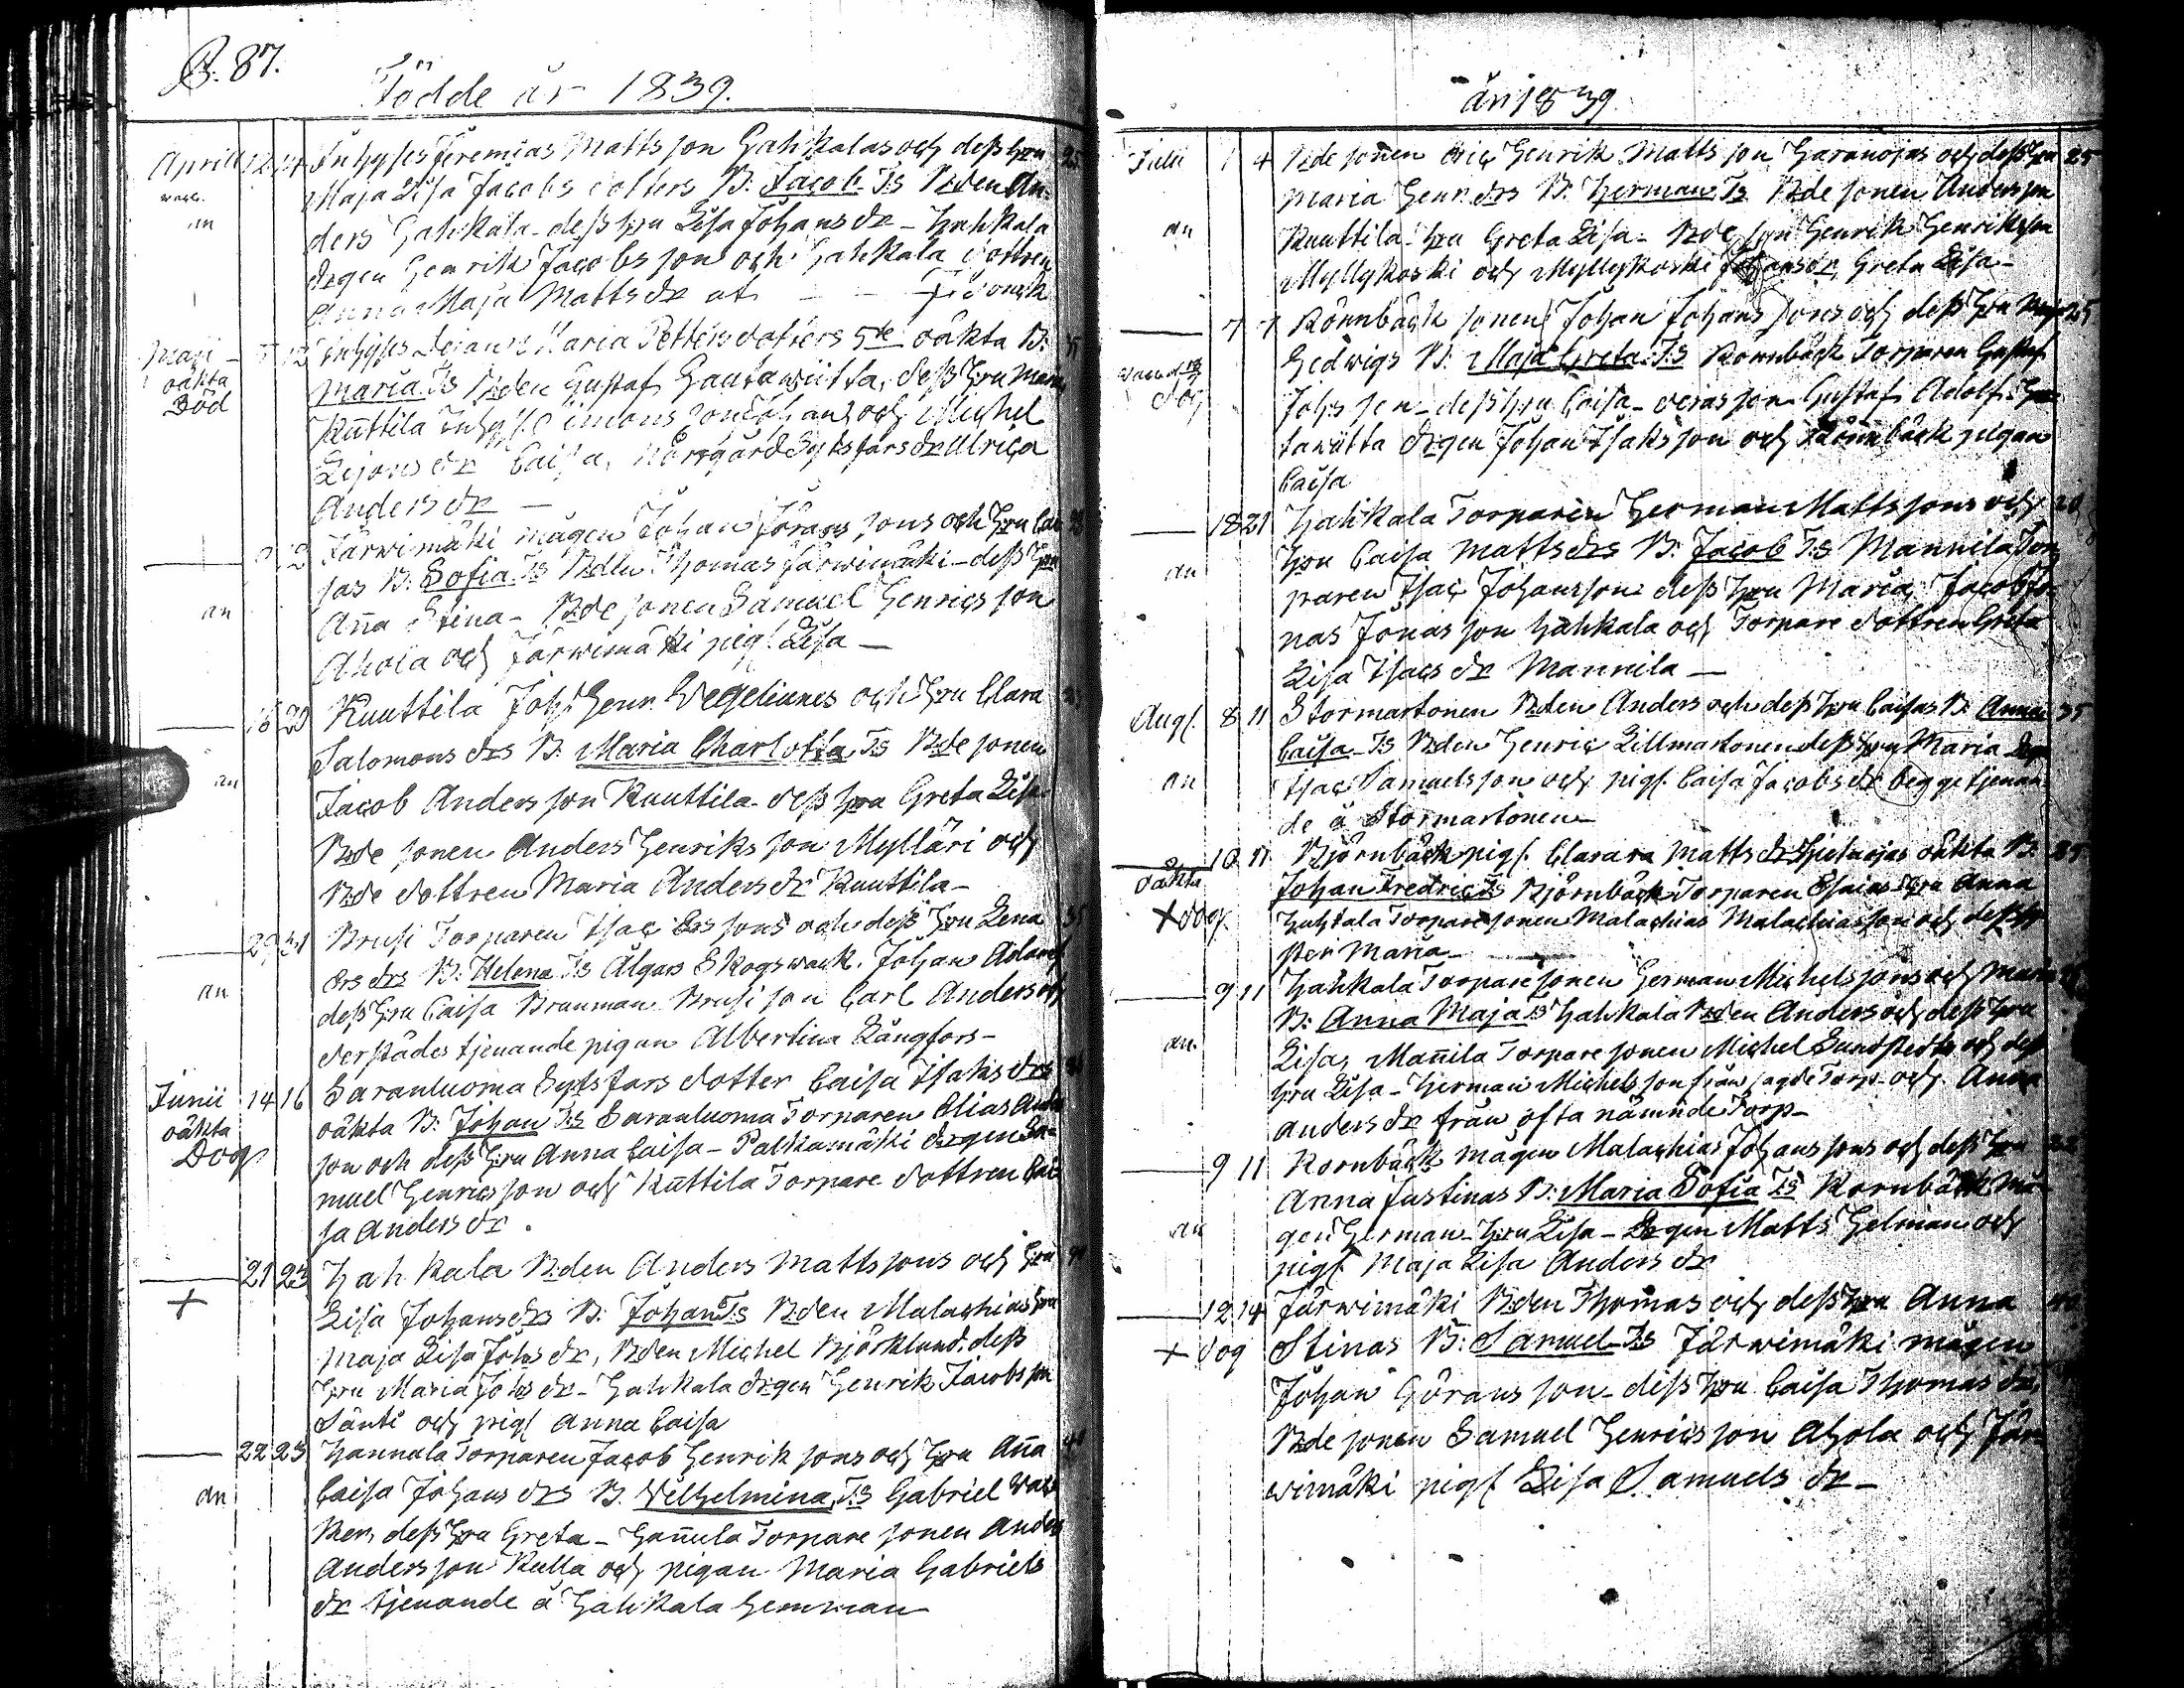 B. 87.
Födde år 1839.
Aprill 12 14 Inhyses Jeremias Matts son Hahkalas och dess hru 25
Maja Lisa Jacobs dotters B: Jacob Ts Bden An-
an ders Hahkala dess hru Lisa Johans dr - Hahkala
drgen Henrik Jacobs son och Hahkala dottren
Anna Maja Matts dr
Maji 12 Inhyses Maria Petters dotters 5te oäkta B:
oäkta Maria Ts Bden Gustaf Hautawiitta, dess hru Maria
Död Kuttila Johan och Michel
Caisa, Norrgård Sytsfars dr Ulrica
Anders dr -
Järwimäki mågen Johan Jörans sons och hru Cai-
sas B: Sofia Ts Bden Thomas Järwimäki - dess hru
an Anna Stina - Bde sonen Samuel Henrics son
Ahola och Järwimäki pigs. Lisa -
20 Kuuttila Joh: Henr. Wegelianes och hru Clara
Salomons drs B: Maria Charlotta Ts Bde sonen
an Jacob Anders son Kuuttila dess hru Greta Lisa
Bde sonen Anders Henriks son Mylläri och
Bde dottren Maria Anders dr Kuuttila -
29 31 Brusi Torparen Isac Ers sons och dess hru Lena 35
Ers drs B: Helena Ts Älgars Skogswack. Johan
an dess hru Caisa Brunman Brusi son Carl Anders och
derstädes tjenande pigan Albertina Långfors -
Junii 14 16 Saranluoma Sytsfars dotter Caisa Isaks drs
oäkta oäkta B: Johan Ts Saranluoma Torparen Elias Anders
Dog son och dess hru Anna Caisa - Palkamäki drgen Sa-
muel Henrics son och Kuttila Torpare dottren Cai-
sa Anders dr.
21 23 Hahkala Bden Anders Matts sons och hru
+ Lisa Johans drs B: Johan Ts Bden Malachias hru
Maja Lisa Johs dr, Bden Michel Björklund, dess
hru Maria Johs dr - Hahkala drgen Henrik Jacobs son
Sänti och pigs Anna Caisa
22 23 Hannula Torparen Jacob Henrik sons och hru Ana
an Caisa Johans drs B. Wilhelmina Ts Gabriel
dess hru Greta - Hanula Torpare sonen Anders
Anders son Kulla och pigan Maria Gabriels
dr tjenande å Hahkala Hemman
år 1839.
Julii 1 4 Bde sonen Eric Henrik Matts son Haranojas och dess hru 25
Maria Henr. drs B: Herman Ts Bde sonen Anders son
an Kuuttila - hru Greta Lisa - Bde son Henrik Henriks son
Myllykoski och Myllykoski Johans dr Greta Lisa -
7 7 Rönnbäck sonen Johan Johans sons och dess hru Maja 25
Hedwigs B: Maja Greta Ts Rönnbäck Torparen Gustaf
dog Johs son - dess hru Caisa - deras son Gustaf Adolf - Hau-
tawiitta drgen Johan Isaks son och Rönnbäck pigan
Caisa
18 21 Hahkala Torparen Herman Matts sons och 20
hru Caisa Matts drs B: Jacob Ts Mannila Tor-
an paren Isac Johans son dess hru Maria, Jacob Jo-
nas Jonas son Hahkala och Torpare dottren Greta
Lisa Isacs dr Mannila -
Augs. 8 11 Stormartonen Bden Anders och dess hru Caisas B: Anna 35
Caisa Ts Bden Henric Lillmartonen dess hru Maria Drgn
an Isac Samuels son och pigs. Caisa Jacobs dr begge tjenan-
de å Stormartonen -
10 11 Björnbäck pigs. Clara Matts dr oäkta B: 25
oäkta Johan Fredric Ts Björnbäck Torparen Esaias hru Anna
+ dog. Huhtala Torpare sonen Malachias Malachias son och dess sy-
ster Maria -
9 11 Hahkala Torpare sonen Herman Michels sons och Maria
B: Anna Maja Ts Hahkala Bden Anders och dess hru
an. Lisa, Manila Torpare sonen Michel Sundstedt och dess
hru Lisa - Herman Michels son från sagde Torp - och Anna
Anders dr från ofta nämnde Torp -
9 11 Kornbäck mågen Malachias Johans sons och dess hru
Anna Justinas B: Maria Sofia Ts Kornbäck må-
an gen Herman hru Lisa - Drgen Matts Helman och
pigs. Maja Lisa Anders dr
12 14 Järwimäki Bden Thomas och dess hru Anna 40
+ dog Stinas B: Samuel Ts Järwimäki mågen
Johan Görans son - dess hru Caisa Thomas dr,
Bde sonen Samuel Henrics son Ahola och Jär-
wimäki pigs Lisa Samuels dr -